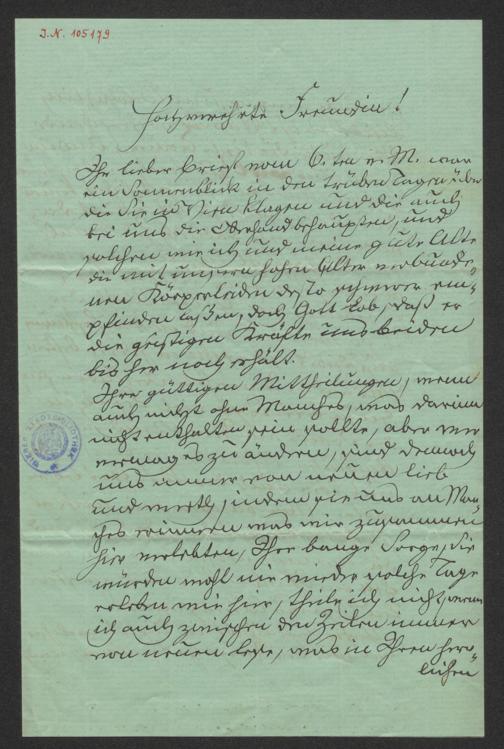 J.N. 105179
Hochverehrte Freundin!
Ihr lieber Brief vom 6. ten v. M. war
ein Sonnenblick in den trüben Tagen über
die Sie in Wien klagen und die auch
bei uns die Oberhand behaupten, und
solchen wie ich und meine gute Alte
die mit unsern hohen Alter verbunde-
nen Körperleiden desto schwerer em-
pfinden laßen, doch Gott Lob, daß er
die geistigen Kräfte uns beiden
bis her noch erhält.
Ihre güttigen Mittheilungen, wenn
auch nicht ohne Manches, was darinn
nicht enthalten sein sollte, aber wer
vermag es zu ändern, sind dennoch
uns immer von neuen lieb
und werth, indem sie uns an Man-
ches erinnern was wir zusammen
hier verlebten, Ihre bange Sorge, Sie
würden wohl nie wieder solche Tage
erleben wie hier, theile ich nicht, wenn
ich auch zwischen den Zeilen immer
von neuen lese, was in Ihren herr-
lichen
WIENER STADTBIBLIOTHEK